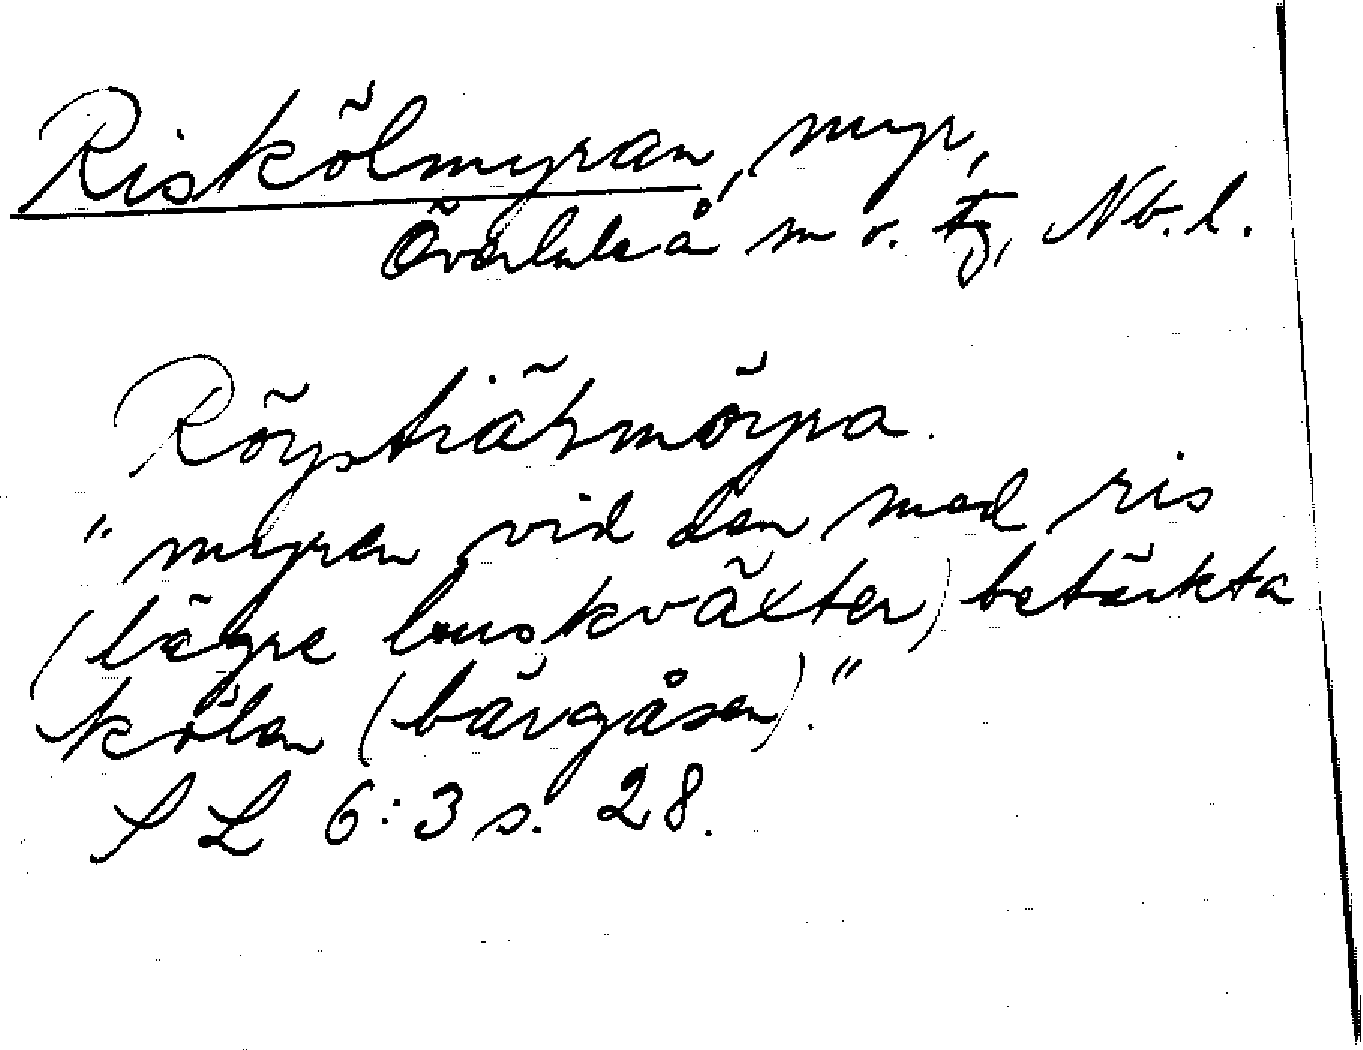 Riskölmyran, myr,
Överluleå m o. tg, Nb. l.
Röystiählmöyra.
"myren vid den med ris
(lägre buskväxter) betäckta
kölen (bärgåsen)."
SL 6:3 s. 28.